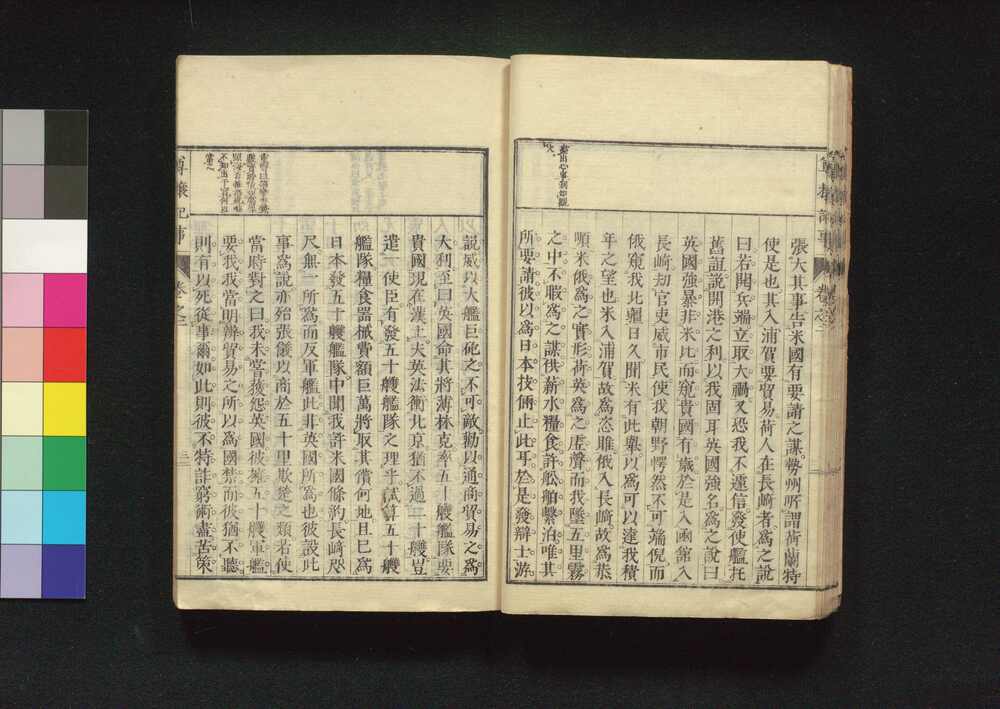 張大其事告米國有要請之謀勢州所謂荷蘭特
使是也其入浦賀要貿易荷人在長崎者爲之說
曰若開兵端立取大禍又恐我不遽信發使艦托
舊誼說開港之利以我固耳英國強名爲之說曰
英國強暴非米比而窺貴國有歲於是入函館入
長崎劫官吏威市民使我朝野愕然不可端倪而
俄窺我北疆日久聞米有此舉以爲可以達我積
年之望也米入浦賀故爲恣睢俄入長崎故爲恭
順米俄爲之實形荷英爲之虛聲而我墜五里霧
之中不暇爲之謀供薪水糧食許舩舶繫泊唯其
所要請彼以爲日本技倆止此耳於是發辯士游
說威以大艦巨砲之不可敵勸以通商貿易之爲
大利至曰英國命其將薄林克率五十艘艦隊要
貴國現在漢土夫英法衝北京猶不過二十艘豈
遣一使臣有發五十艘艦隊之理乎試算五十艘
艦隊糧食器械費額巨萬將取其償何地且已爲
日本發五十艘艦隊中聞我許米國條約長崎咫
尺無一所爲而反軍艦此非英國所爲也彼設此
事爲說亦殆張儀以商於五十里欺楚之類若使
當時對之曰我未嘗獲怨英國彼擁五十艘軍艦
要我我當明辨貿易之所以爲國禁而彼猶不聽
則有以死從事爾如此則彼不特詐窮術盡苦策
尊攘紀事
卷之二